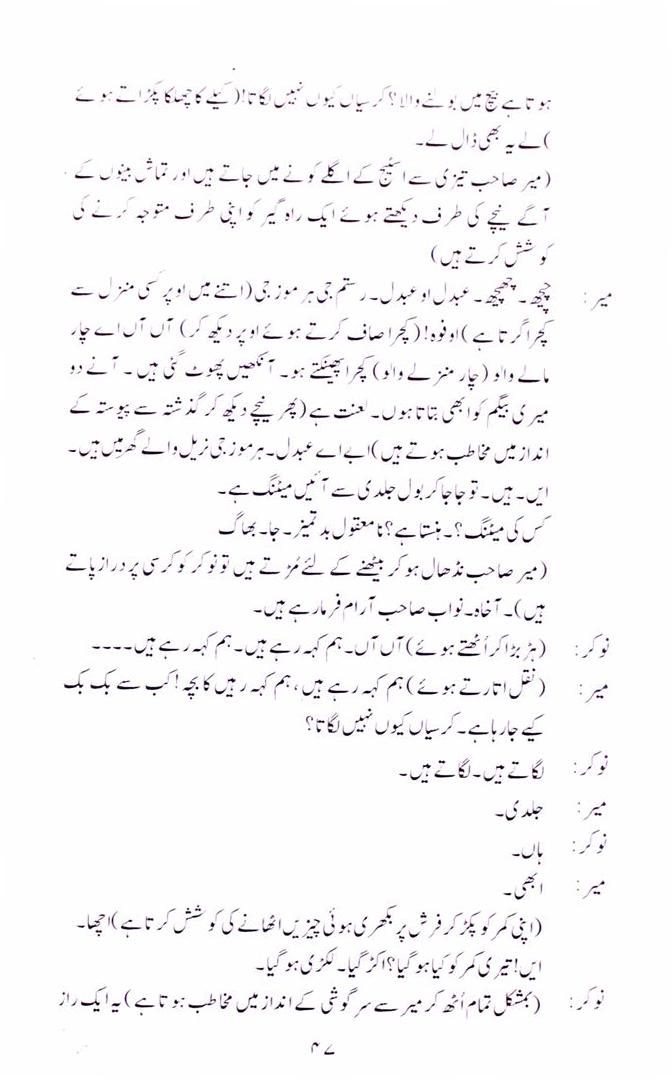 ہوتا ہے بیچ میں بولنے والا؟ کرسیاں کیوں نہیں لگاتا! (کیلے کا چھلکا پکڑاتے ہوئے
) لے یہ بھی ڈال لے۔
(میر صاحب تیزی سے اسٹیج کے اگلے کونے میں جاتے ہیں اور تماش بینوں کے
آگے نیچے کی طرف دیکھتے ہوئے ایک راہ گیر کو اپنی طرف متوجہ کرنے کی
کوشش کرتے ہیں)
میر: چھچھ۔ چھچھ۔ عبدل او عبدل۔ رستم جی ہرموز جی (اتنے میں اوپر کسی منزل سے
کچرا گرتا ہے) اوفوہ! (کچرا صاف کرتے ہوئے اوپر دیکھ کر) آں آں اے چار
مالے والو (چار منزلے والو) کچرا پھینکتے ہو۔ آنکھیں پھوٹ گئی ہیں۔ آنے دو
میری بیگم کو ابھی بتاتا ہوں۔ لعنت ہے (پھر نیچے دیکھ کر گذشتہ سے پیوستہ کے
انداز میں مخاطب ہوتے ہیں) ابے اے عبدل۔ ہرموز جی نریل والے گھر میں ہیں۔
ایں۔ ہیں۔ تو جا جا کر بول جلدی سے آئیں میٹنگ ہے۔
کس کی میٹنگ؟۔ ہنستا ہے؟ نامعقول بدتمیز۔ جا۔ بھاگ
(میر صاحب نڈھال ہو کر بیٹھنے کے لئے مُڑتے ہیں تو نوکر کو کرسی پر دراز پاتے
ہیں)۔ آخاہ۔ نواب صاحب آرام فرما رہے ہیں۔
نوکر: (ہڑبڑا کر اُٹھتے ہوئے) آں آں۔ ہم کہہ رہے ہیں۔ ہم کہہ رہے ہیں۔۔۔۔
میر: (نقل اتارتے ہوئے) ہم کہہ رہے ہیں، ہم کہہ رہیں کا بچہ! کب سے بک بک
کیے جا رہا ہے۔ کرسیاں کیوں نہیں لگاتا؟
نوکر: لگاتے ہیں۔ لگاتے ہیں۔
میر: جلدی۔
نوکر: ہاں۔
میر: ابھی۔
(اپنی کمر کو پکڑ کر فرش پر بکھری ہوئی چیزیں اٹھانے کی کوشش کرتا ہے) اچھا۔
ایں! تیری کمر کو کیا ہو گیا؟ اکڑ گیا۔ لکڑی ہو گیا۔
نوکر: (بمشکل تمام اُٹھ کر میر سے سرگوشی کے انداز میں مخاطب ہوتا ہے) یہ ایک راز
۴۷